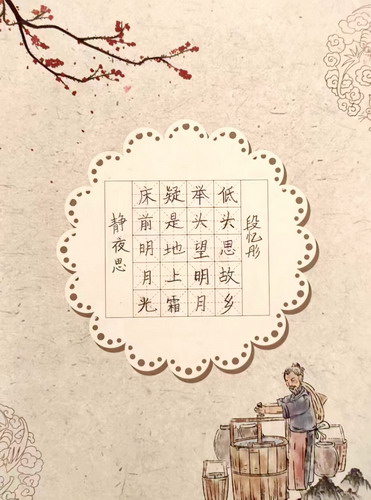 静夜思
床前明月光
疑是地上霜
举头望明月
低头思故乡
段忆彤